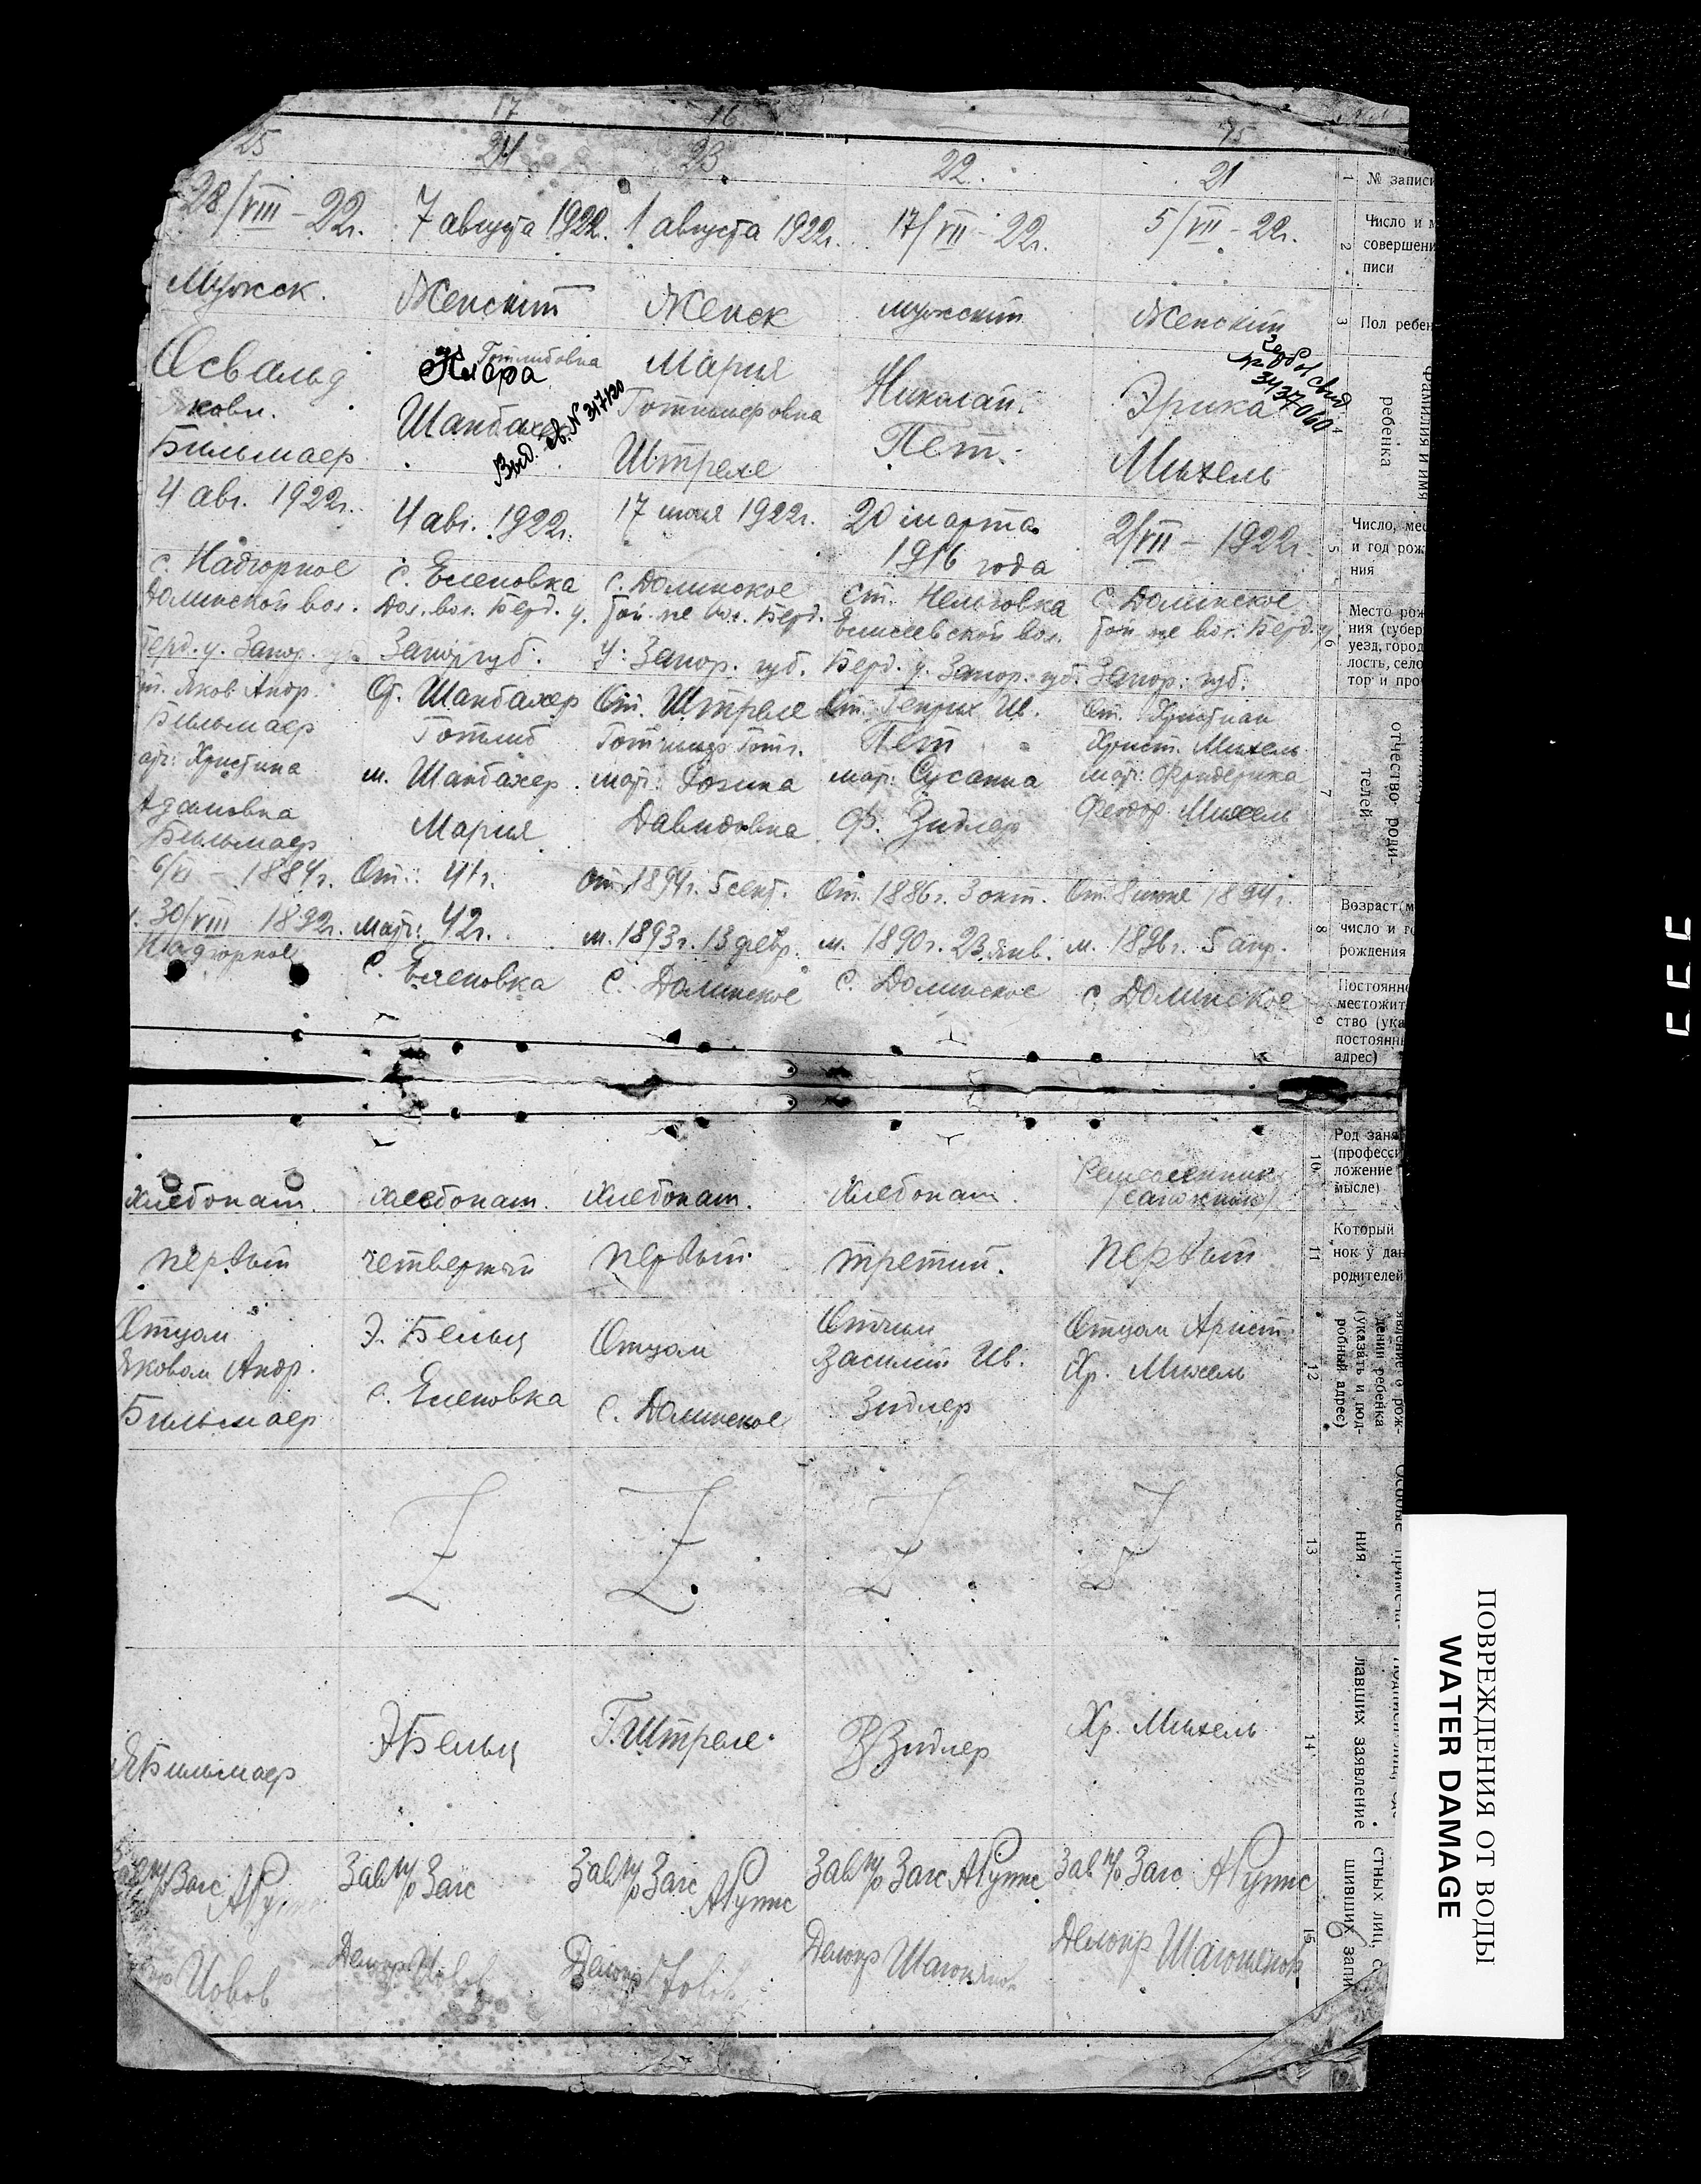 17
16
15
25
24
23
22.
21
1
№ записи
28/VIII – 22г.
7 августа 1922г.
1 августа 1922г.
17/VII – 22г.
5/VII – 22г.
2
Число и
совершени
писи
Мужск.
Женский
Женск
мужский
Женский
3
Пол ребен
Освальд
Яковл.
Бильмаер
Готлибовна
Клара
Шанбахер
Выд. св. №
Мария
Готлиферовна
Штреле
Николай
Пет.
Эрика
Михель
ребенка
Фамилия и имя
4 авг. 1922г.
4 авг. 1922г.
17 июля 1922г.
20 марта
1916 года
2/VII – 1922г.
5
Число, мес
и год рож
ния
с. Надгорное
Долинской вол.
Берд. у. Запор.
с. Еленовка
Дол. вол. Берд. у.
Запор губ.
с. Долинское
той же вол. Берд.
у. Запор. губ.
ст. Нельговка
Елисеевской вол.
Берд. у. Запор. губ.
с. Долинское
той же вол. Берд. у
Запор. губ.
6
Место рож
ния (губер
уезд, город
лость, село
тор и про
Яков Андр.
Бильмаер
Христина
Адамовна
Бильмаер
От. Шанбахер
Готлиб
м. Шанбахер
Мария
От. Штреле
мат: Розина
Давидовна
От. Генрих Ив.
Пет
мат: Сусанна
Ф. Зидлер
От. Христиан
Христ. Михель
мат: Фридерика
Феодор. Михель
7
отчество роди-
телей
6/VI – 1884г.
30/VIII 1892г.
От.: 41г.
мат: 42г.
от. 1894г. 5 сент.
м. 1893г. 13 февр.
От. 1886г. 3 окт.
м. 1890г. 23 янв.
От. 8 июня 1894г.
м. 1896г. 5 апр.
8
Возраст (м
число и го
рождения
Надгорное
с. Еленовка
с. Долинское
с. Долинское
с. Долинское
9
Постоянно
местожит
ство (ука
постоянны
адрес)
хлебопаш.
хлебопаш.
хлебопаш.
хлебопаш.
Ремесленник
/сапожник/
10
Род заня
(професси
ложение
мысле)
первый
четвертый
первый
третий.
первый
11
Который
нок у дан
родителей
Отцом
Яковом Андр.
Бильмаер
Э. Бельц
с. Еленовка
Отцом
с. Долинское
Отчим
Василий Ив.
Зидлер
Отцом Христ.
Хр. Михель
12
явление о рож-
дении ребенка
(указать и под-
робный адрес)
Z
Z
Z
Z
13
Особые примеча-
ния
ЯБильмаер
ЭБельц
Г. Штреле
ВЗидлер
Хр. Михель
14
лавших заявление
Зав п/о Загс
Зав п/о Загс
Зав п/о Загс
Зав п/о Загс
Зав п/о Загс
Иовов
Делопр Иовов
Делопр Иовов
Делопр
Делопр
15
стных лиц, с
шивших запи
ПОВРЕЖДЕНИЯ ОТ ВОДЫ
WATER DAMAGE